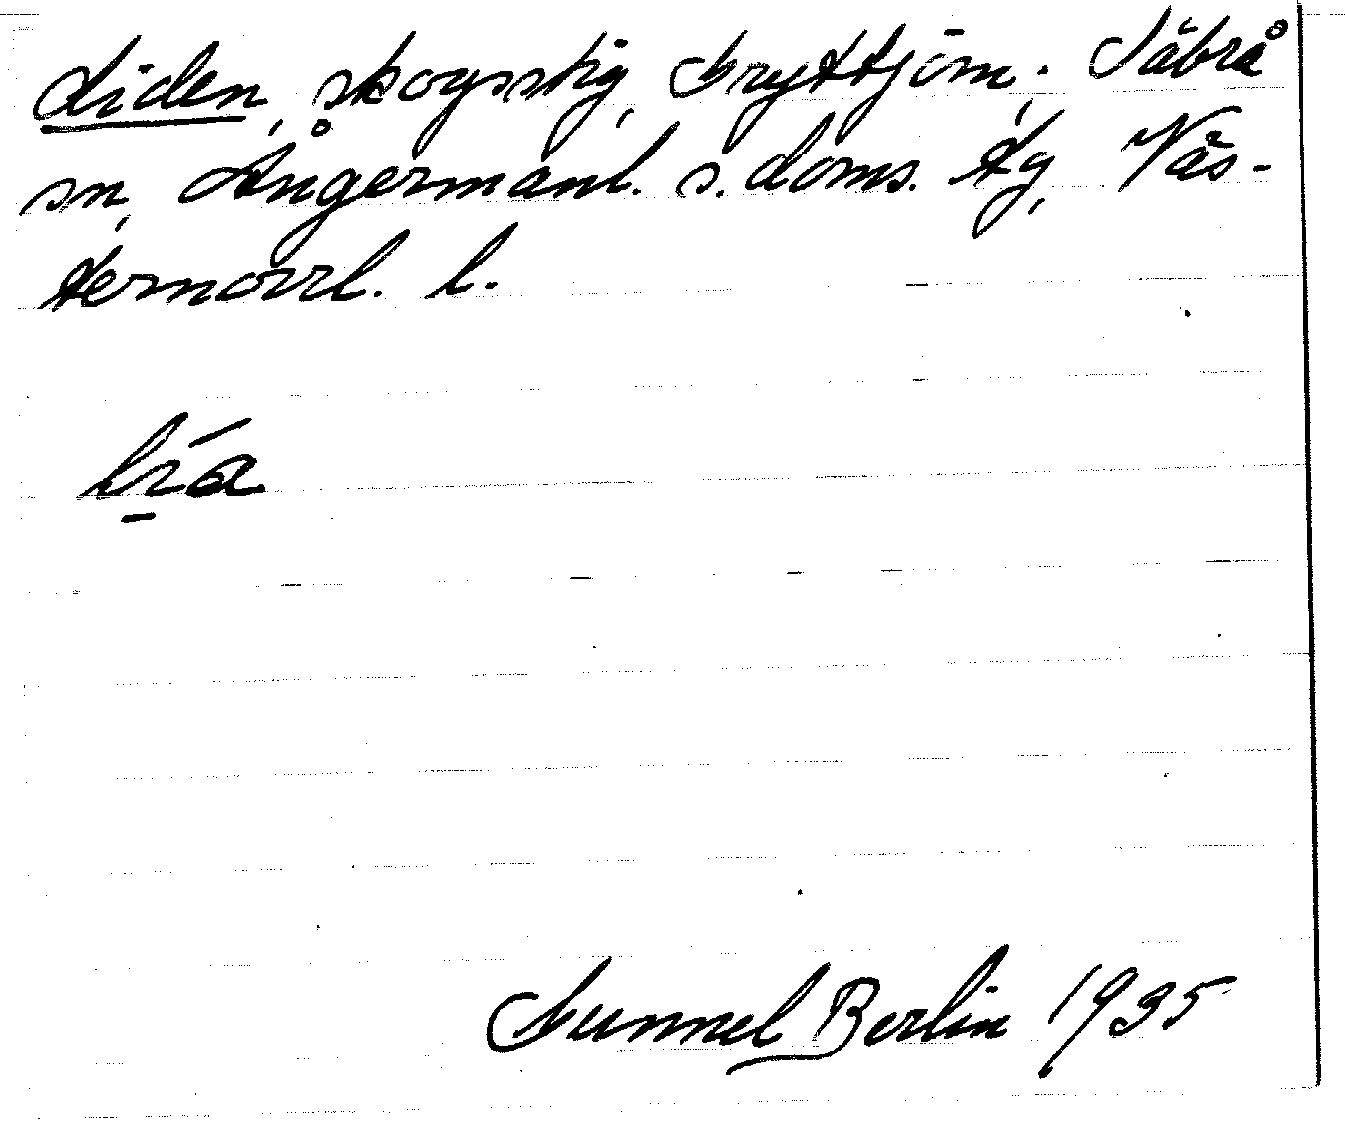 Liden, skogsstig, Gryttjöm, Säbrå
sn, Ångermanl. s. doms. tg, Väs-
ternorrl. l.
Gunnel Berlin 1935